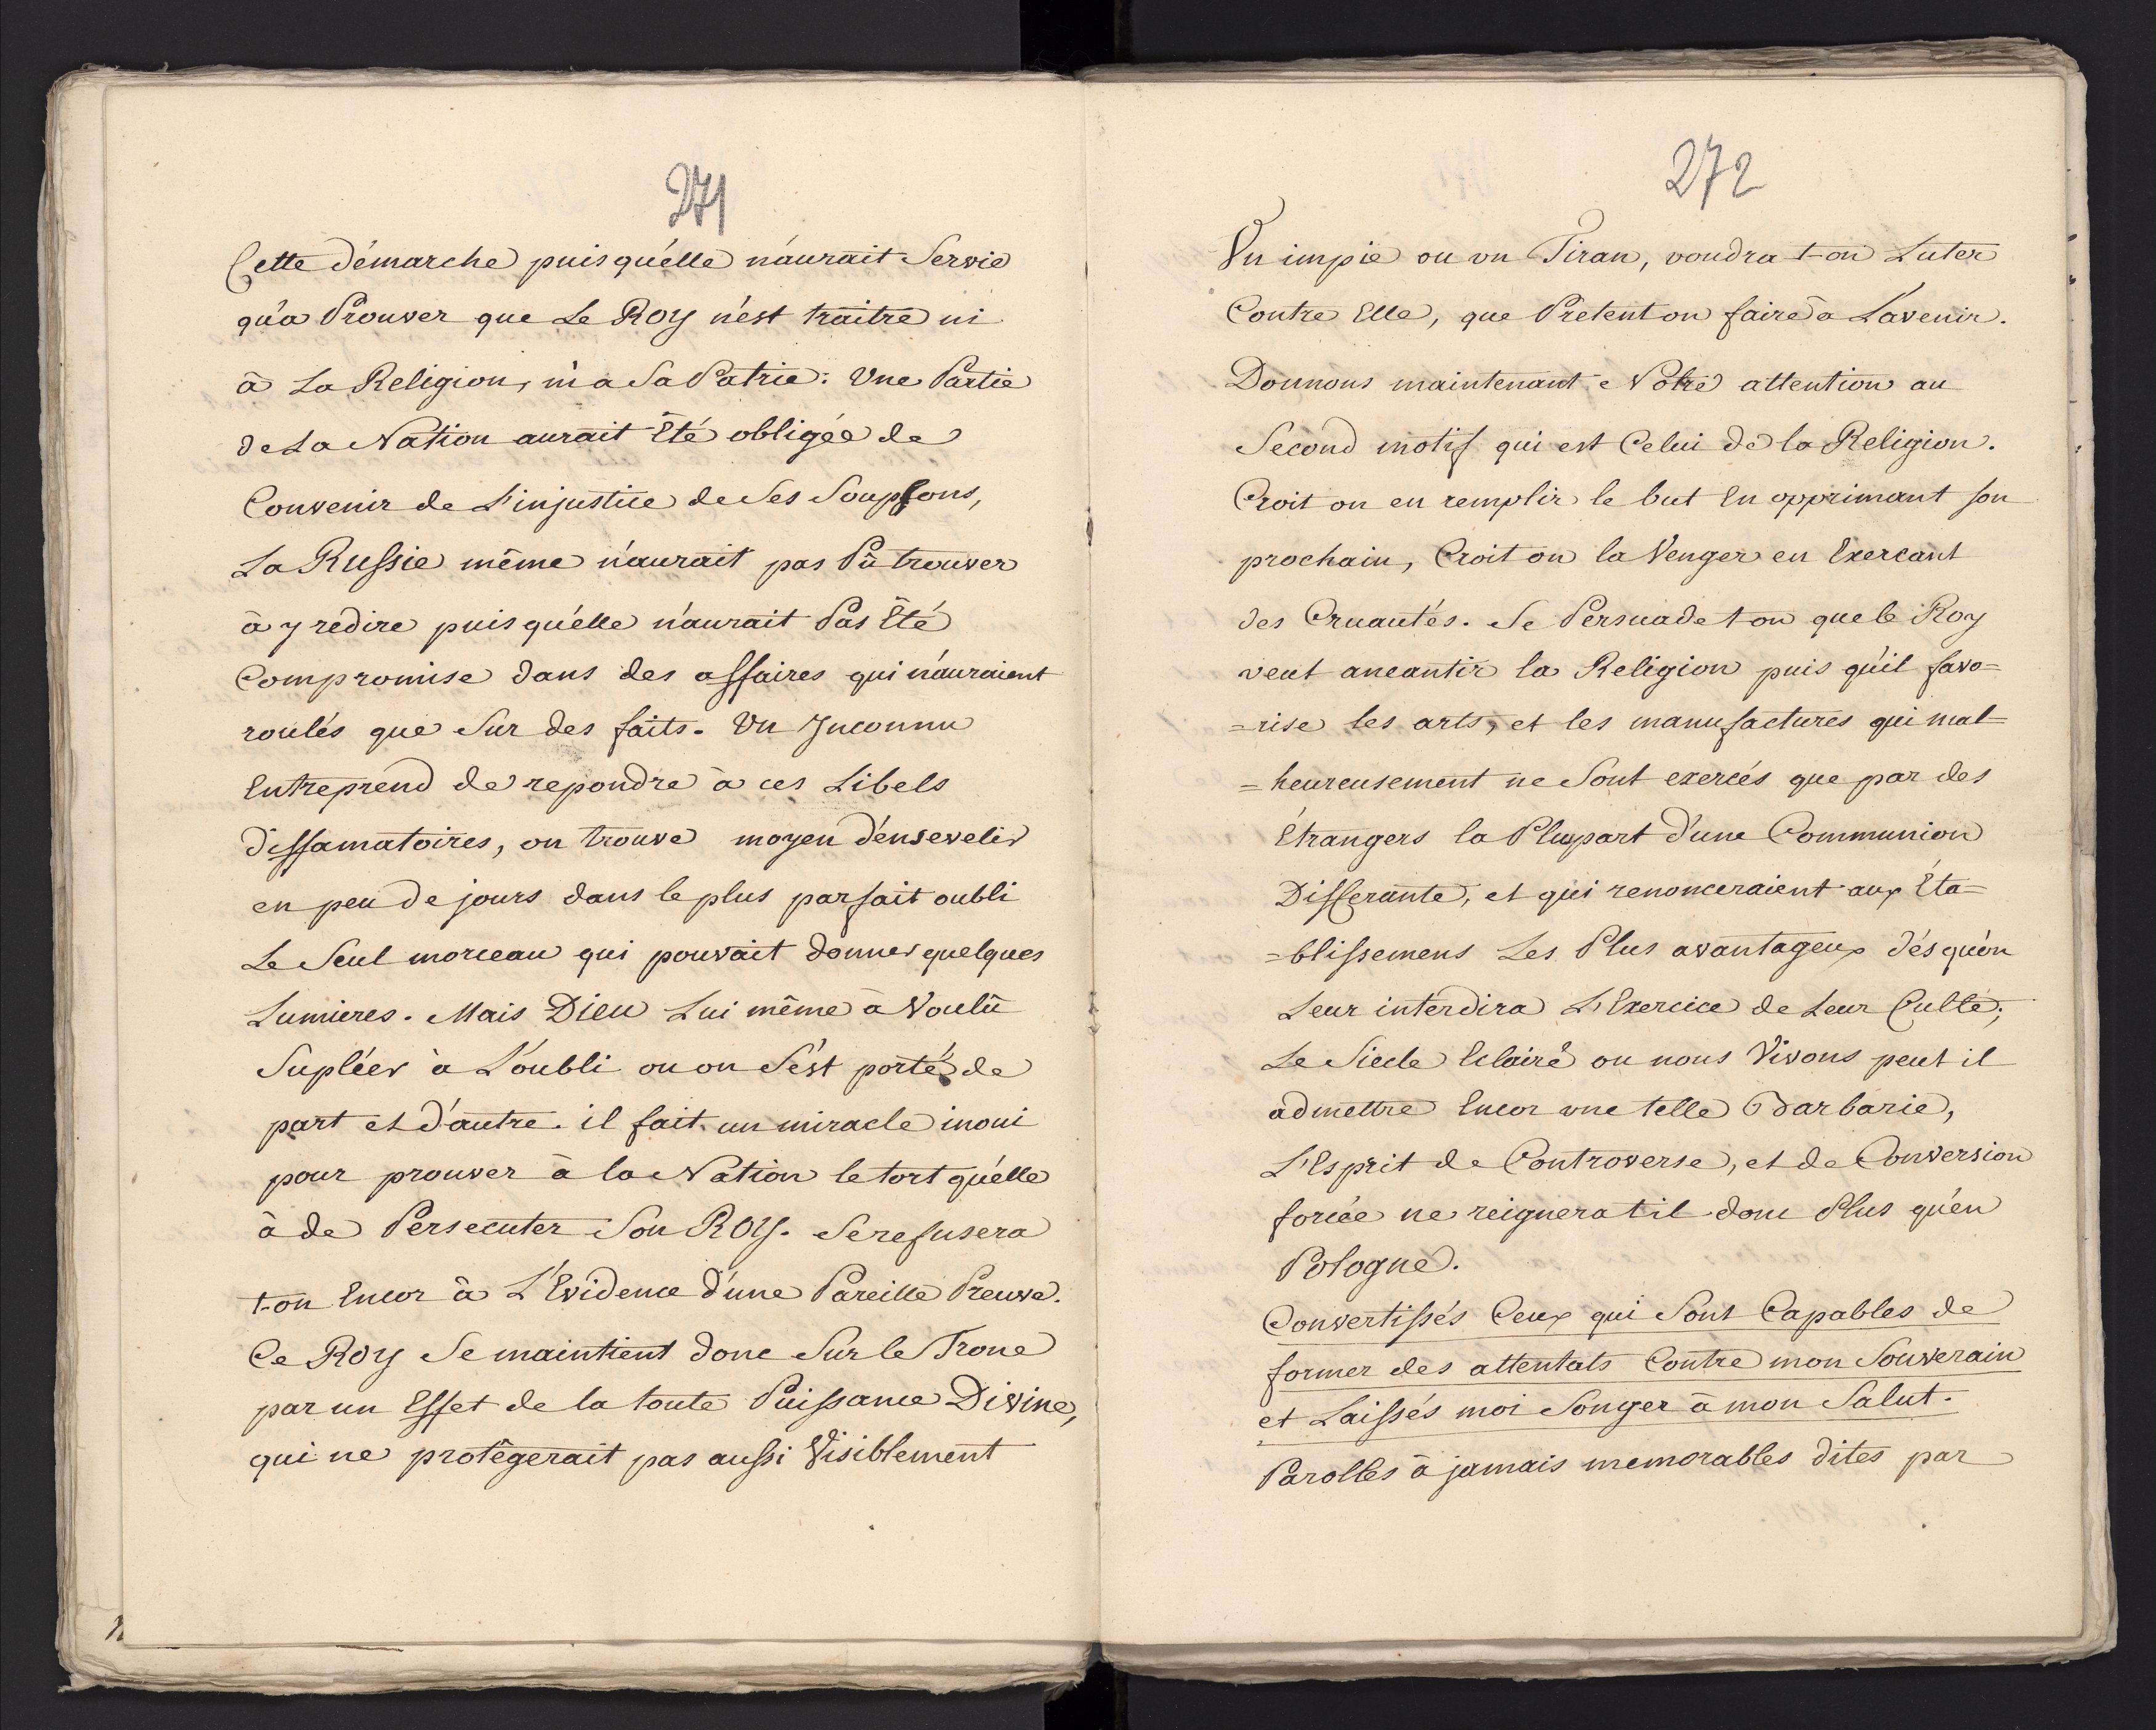 271
Cette démarche puis qu'élle n'áurait Servie
qu'a Prouver que Le ROY n'est traitre ni
à La Religion, ni a Sa Patrie: Une Partie
de La Nation aurait Été obligée de
Convenir de L'injustice de Ses Soupçons,
La Russie même n'aurait pas Pû trouver
à y redire puis qu'élle n'áurait Pas Été
Compromise dans des affaires qui n'áuraient
roulés que Sur des faits. Un Inconnu
Entreprend de repondre à ces Libels
diffamatoires, on trouve moyen d'énsevelir
en peu de jours dans le plus parfait oubli
Le Seul morceau qui pouvait donner quelques
Lumieres. Mais DIEU Lui même à Voulû
Supléer à L'oubli ou on S'ést porté de
part et d'áutre. il fait un miracle inoui
pour prouver à la Nation le tort qu'élle
à de Persecuter Son ROY. Se refusera
t-on Encor à L'Evidence d'une Pareille Preuve.
Ce ROY Se maintient donc Sur le Trone
par un Effet de la toute Puissance Divine,
qui ne protêgerait pas aussi Visiblement
272
Un impie ou un Tiran, voudra t-on Luter
Contre Elle, que Pretent on faire à L'avenir.
Donnons maintenant Notre attention au
Second motif qui est Celui de la Religion.
Croit on en remplir le but En opprimant son
prochain, Croit on la Venger en Exercant
des Cruautés. Se Persuade t on que le Roy
veut aneantir la Religion puis qu'il favo=
=rise les arts, et les manufactures qui mal=
=heureusement ne Sont exercés que par des
Étrangers la Plupart d'une Communion
Differante, et qui renonceraient aux Éta=
=blissemens Les Plus avantageux dés qu'on
Leur interdira L'Exercice de Leur Culte;
Le Siecle Eclairé ou nous Vivons peut il
admettre Encor une telle Barbarie,
L'Esprit de Controverse, et de Conversion
forcée ne reignera t il donc Plus qu'en
Pologne.
Convertissés Ceux qui Sont Capables de
former des attentats Contre mon Souverain
et Laissés moi Songer à mon Salut.
Parolles à jamais memorables dites par